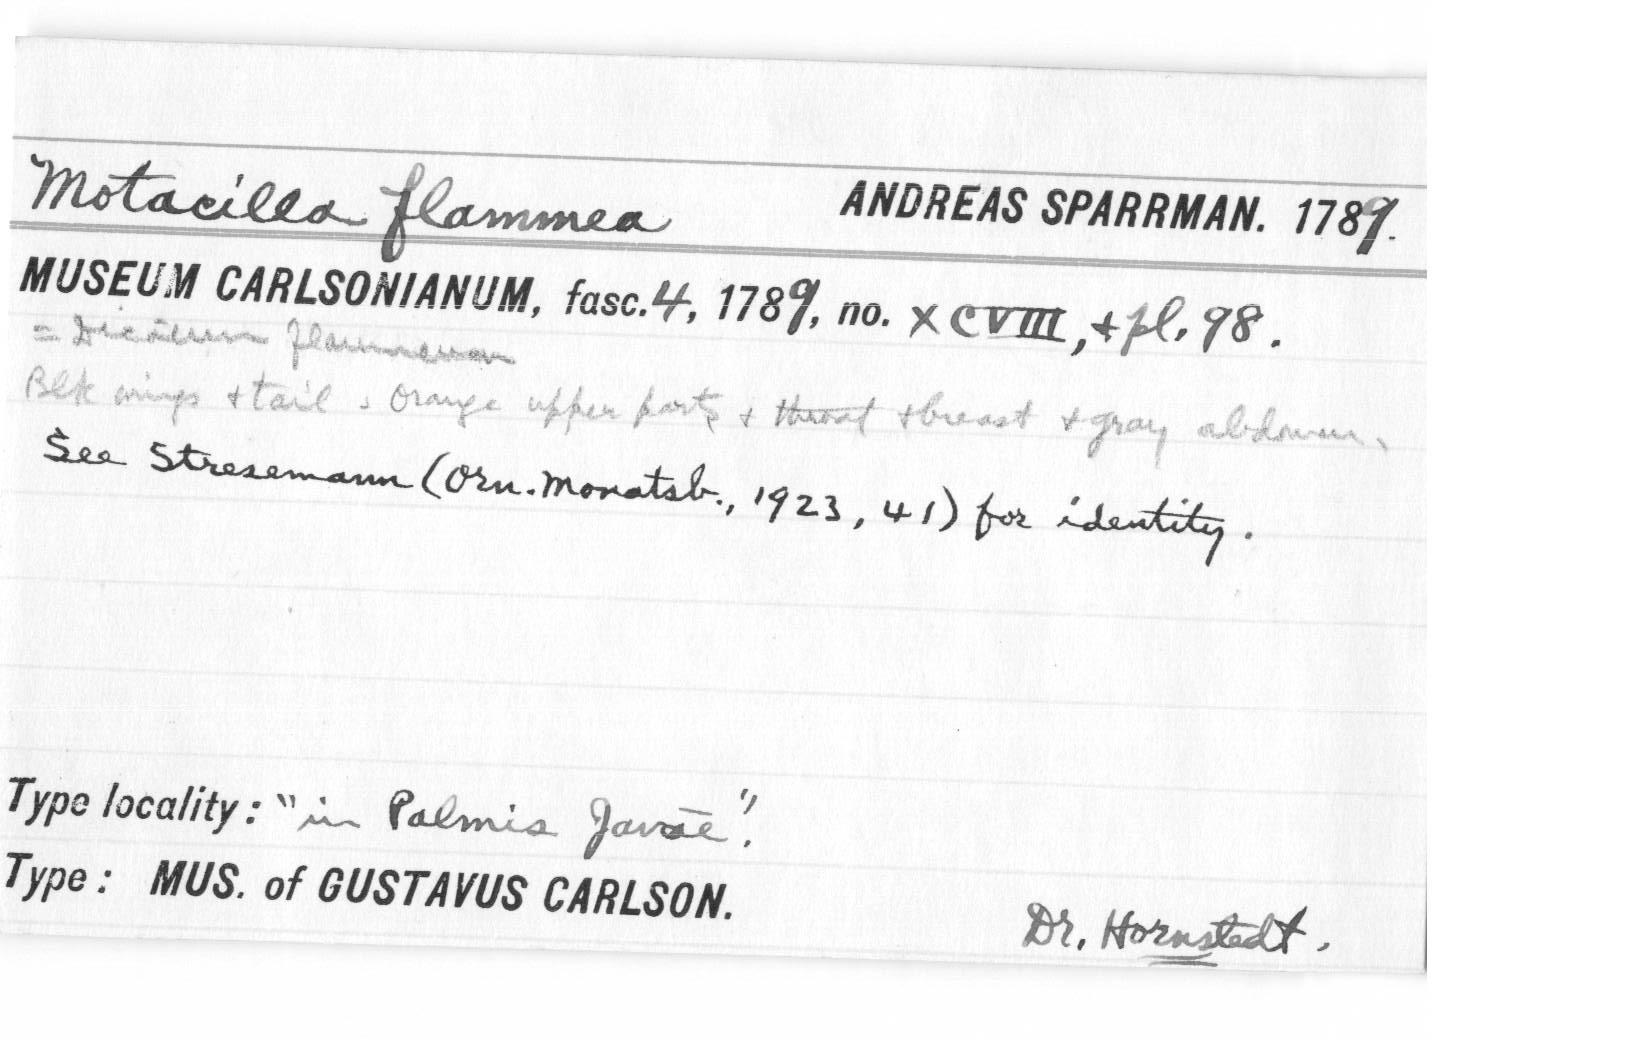 Motacilla flammea ANDREAS SPARRMAN. 1789.
MUSEUM CARLSONIANUM, fasc. 4, 1789, no. XCVIII, + pl. 98.
= Dicaeum flammeum
Blk wings + tail, orange upper parts + throat + breast + gray abdomen.
See Stresemann (Orn. Monatsb., 1923, 41) for identity.
Type locality: "in Palmis Javae".
Type: MUS. of GUSTAVUS CARLSON.
Dr. Hornstedt.